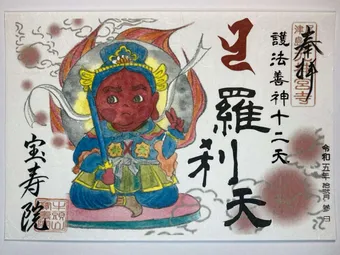 奉拝
護法善神十二天
羅刹天
令和五年
宝寿院